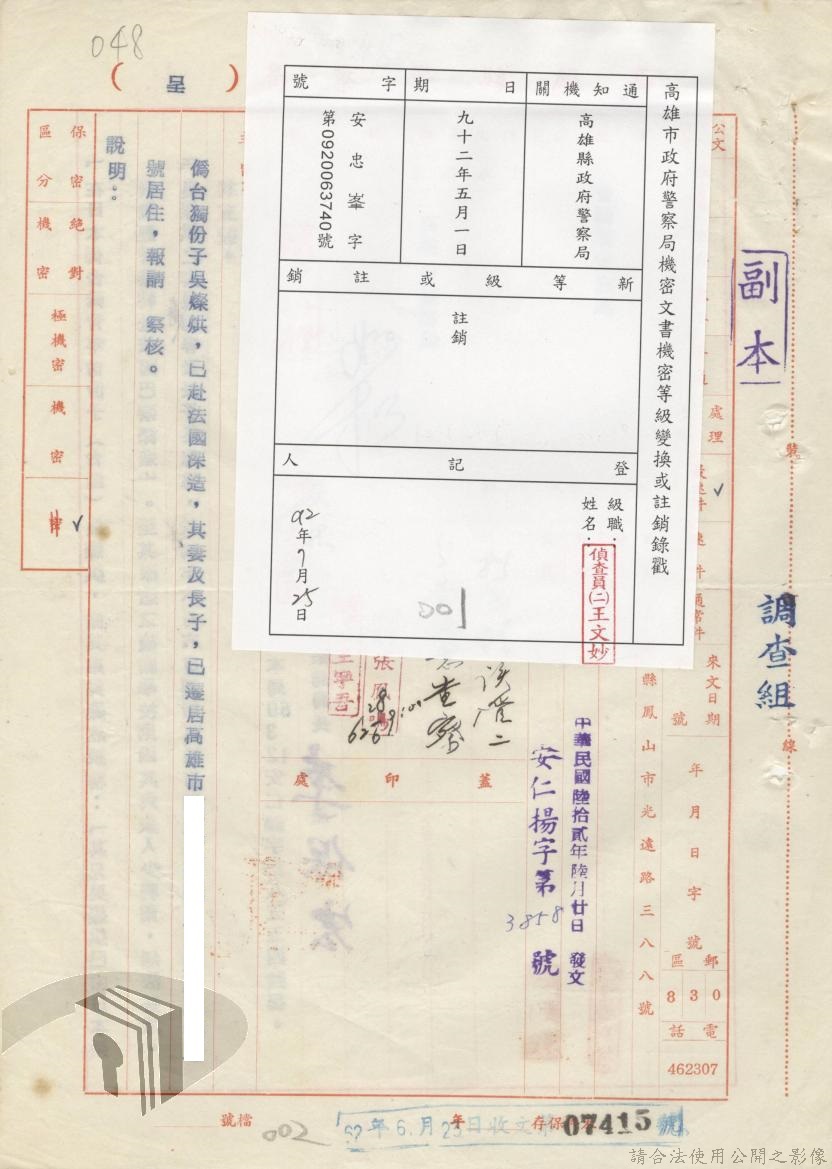 048
（呈）
副本
調查組
裝
線
高雄市政府警察局機密文書機密等級變換或註銷錄戳
通知機關
高雄縣政府警察局
日期
九十二年五月一日
字號
安忠峯字
第0920063740號
新等級或註銷
註銷
登記人
級職：
姓名：
偵查員(二)王文妙
92年7月25日
001
公文
處理
速件
通常件
來文日期
字號
年月日
字號
郵區
830
電話
462307
縣鳳山市光遠路三八八號
中華民國陸拾貳年陸月廿日發文
安仁揚字第3858號
蓋印處
保密區分
絕對機密
極機密
機密
密
✓
偽台獨份子吳燦烘，已赴法國深造，其妻及長子，已遷居高雄市
號居住，報請 察核。
說明：
檔號
002
保存
年
62年6月23日收文
07415
號
請合法使用公開之影像